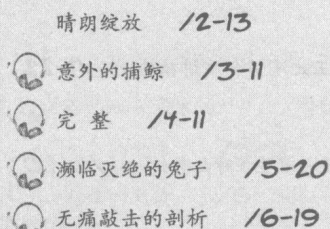 晴朗绽放 /2-13
意外的捕鲸 /3-11
完 整 /4-11
濒临灭绝的兔子 /5-20
无痛敲击的剖析 /6-19